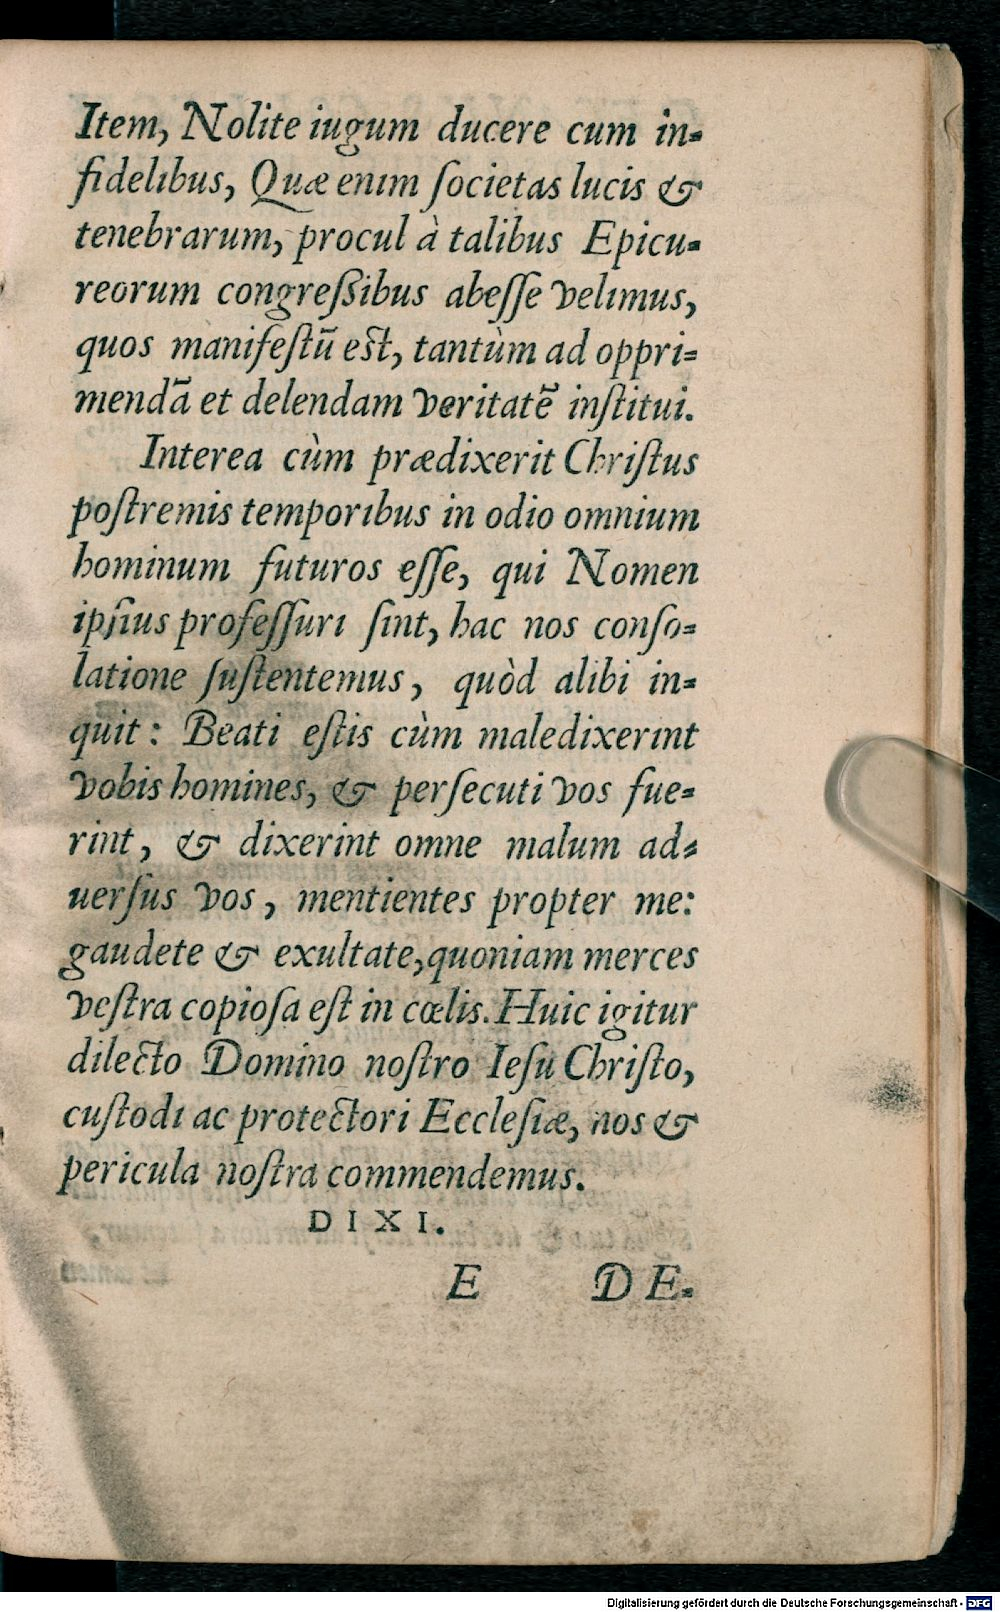 Item, Nolite iugum ducere cum in=
fidelibus, Quæ enim ſocietas lucis &
tenebrarum, procul à talibus Epicu=
reorum congreßibus abeſſe velimus,
quos manifeſtū eſt, tantùm ad oppri=
mendā et delendam veritatē inſtitui.
Interea cùm prædixerit Chriſtus
poſtremis temporibus in odio omnium
hominum futuros eſſe, qui Nomen
ipſius profeſſuri ſint, hac nos conſo=
latione ſuſtentemus, quòd alibi in=
quit: Beati eſtis cùm maledixerint
vobis homines, & perſecuti vos fue=
rint, & dixerint omne malum ad=
uerſus vos, mentientes propter me:
gaudete & exultate, quoniam merces
veſtra copioſa eſt in cœlis. Huic igitur
dilecto Domino noſtro Ieſu Chriſto,
cuſtodi ac protectori Eccleſiæ, nos &
pericula noſtra commendemus.
DIXI.
E DE=
Digitalisierung gefördert durch die Deutsche Forschungsgemeinschaft - DFG